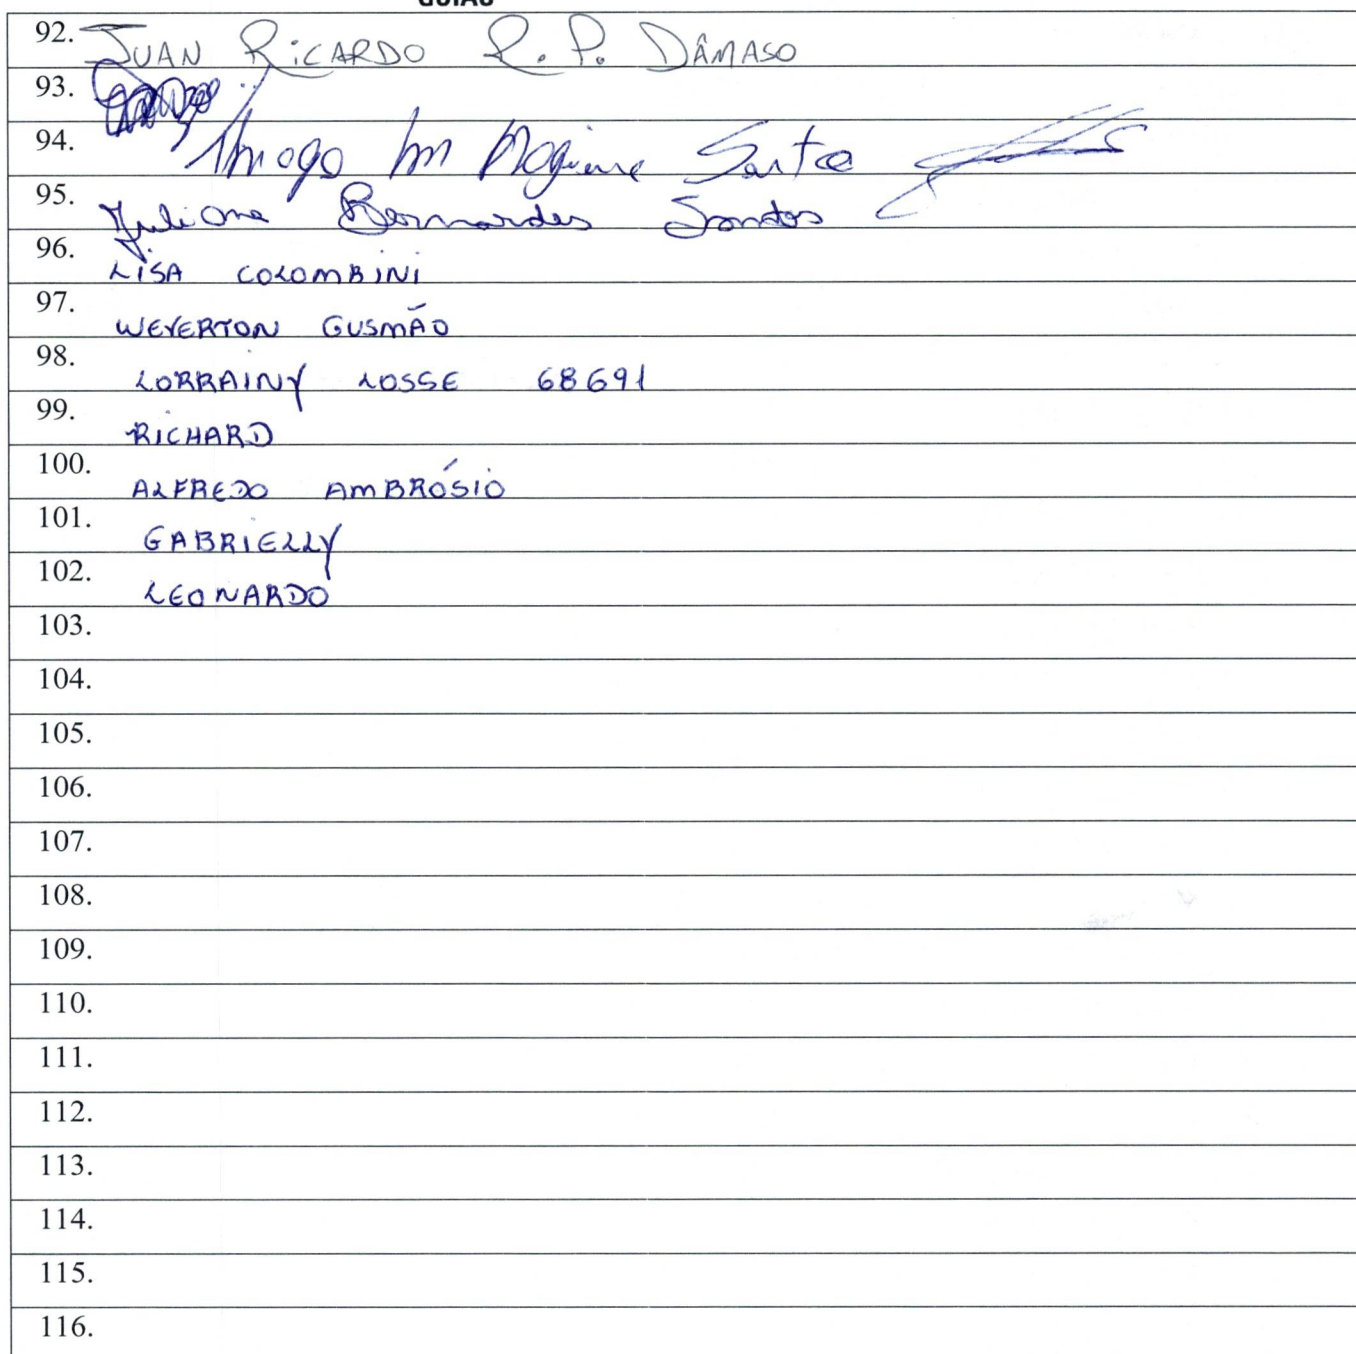 92. JUAN RICARDO R. P. DÂMASO
93.
94. Thiago Santos
95. Juliana Bernardes Santos
96. LISA COLOMBINI
97. WEVERTON GUSMÃO
98. LORRAINY LOSSE 68691
99. RICHARD
100. ALFREDO AMBRÓSIO
101. GABRIELLY
102. LEONARDO
103.
104.
105.
106.
107.
108.
109.
110.
111.
112.
113.
114.
115.
116.